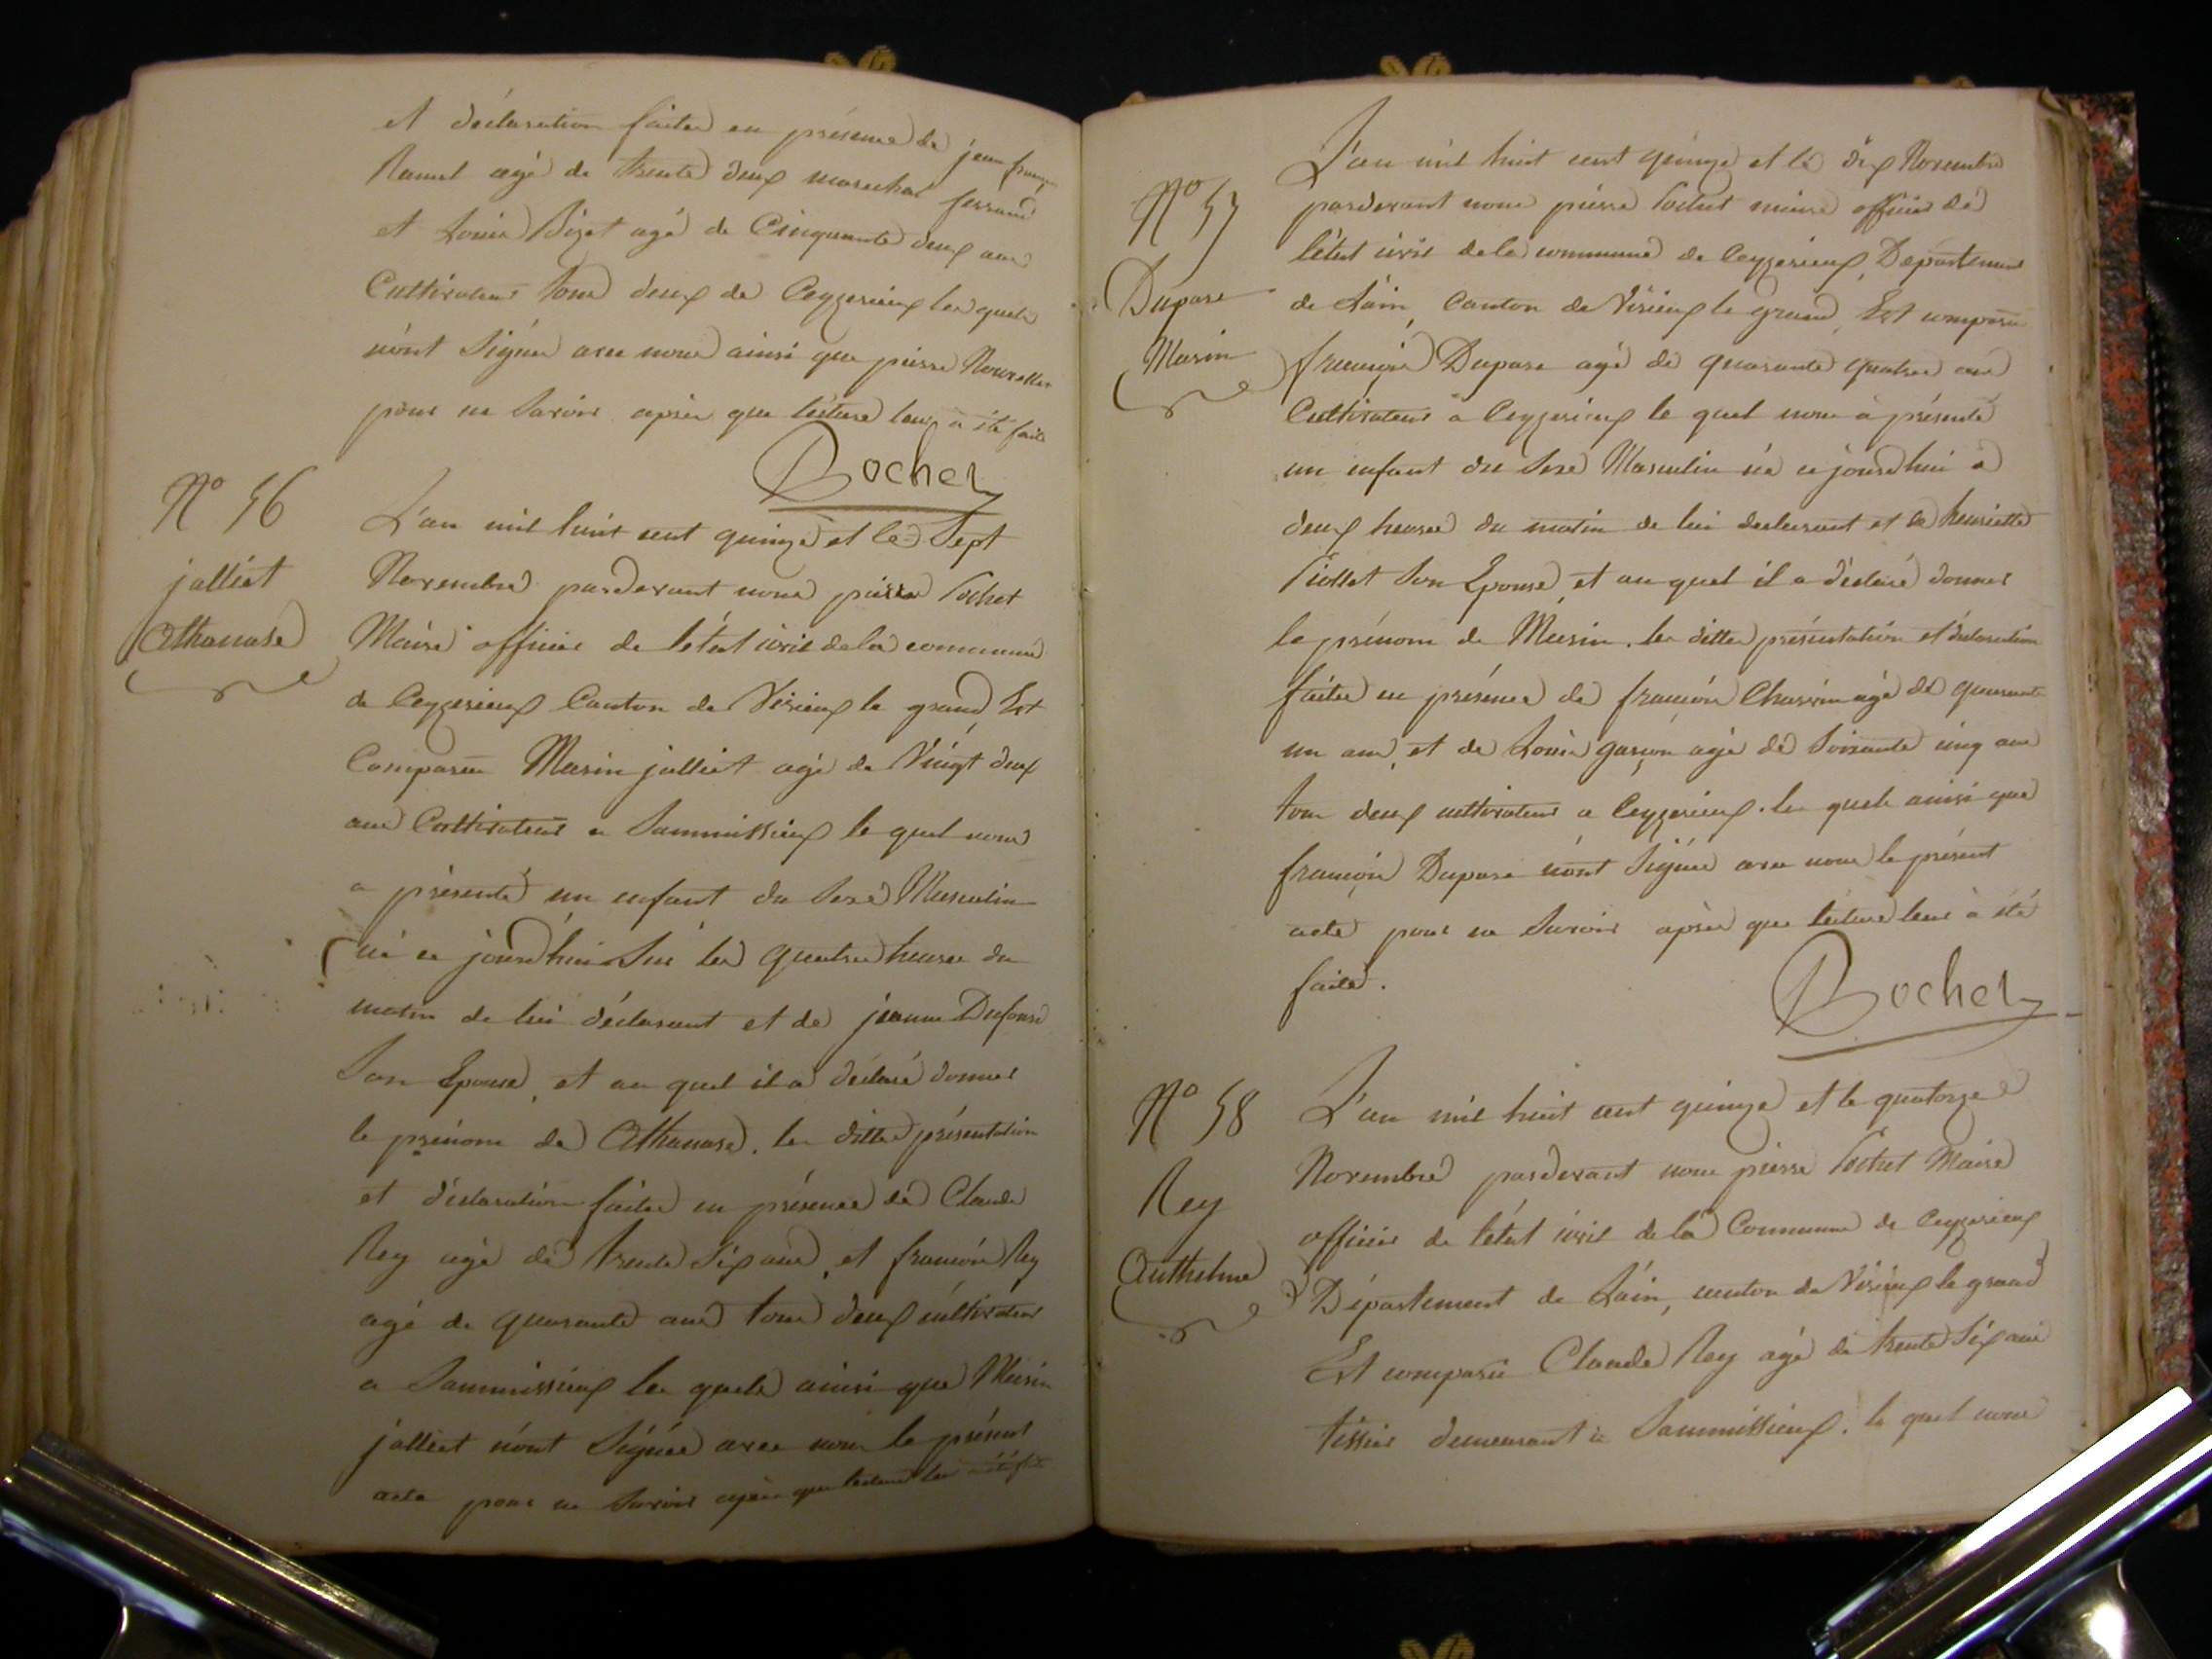 et déclaration faites en présence de jean françois
Ramel agé de trente deux marechal ferrand
et Louis Bizet agé de Cinquante deux ans
Cultivateurs tous deux de Ceyzerieux les quels
n'ont Signés avec nous ainsi que pierre
pour ne Savoir après que lecture leur à été faite
Bochet
N° 56
jalliet
Athanase
L'an mil huit cent quinze et le Sept
Novembre pardevant nous pierre Bochet
Maire officier de l'état civil de la commune
de Ceyzerieux Canton de Virieux le grand Est
Comparu Marin jalliet agé de Vingt deux
ans Cultivateur a Sammissieux le quel nous
a présenté un enfant du Sexe Masculin
né ce jourd'hui Sur les quatre heures du
matin de lui déclarant et de jeanne Dufour
Son Epouse, et au quel il a déclaré donner
le prénom de Athanase. les dittes présentation
et déclaration faites en présence de Claude
Rey agé de trente Six ans, et françois Rey
agé de quarante ans tous deux cultivateurs
a Sammissieux les quels ainsi que Marin
jalliet n'ont Signés avec nous le présent
acte pour ne Savoir après que lecture leur a été faite
N° 57
Dupare
Marin
L'an mil huit cent quinze et le dix Novembre
pardevant nous pierre Bochet maire officier de
l'état civil de la commune de Ceyzerieux, Département
de L'ain, Canton de Virieux le grand, Est comparu
françois Dupare agé de quarante quatre ans
Cultivateur à Ceyzerieux le quel nous à présenté
un enfant du Sexe Masculin né ce jourd'hui à
deux heures du matin de lui declarant et de henriette
Piollet Son Epouse, et au quel il a déclaré donner
le prénom de Marin. les dittes présentation et déclaration
faites en présence de françois agé de quarante
un ans, et de Louis garçon agé de Soixante cinq ans
tous deux cultivateurs a Ceyzerieux. les quels ainsi que
françois Dupare n'ont Signés avec nous le présent
acte pour ne Savoir après que lecture leur à été
faite.
Bochet
N° 58
Rey
Anthelme
L'an mil huit cent quinze et le quatorze
Novembre pardevant nous pierre Bochet Maire
officier de l'état civil de la Commune de Ceyzerieux
Département de L'ain, canton de Virieux le grand
Est comparu Claude Rey agé de trente Six ans
tissier demeurant à Sammissieux. le quel nous